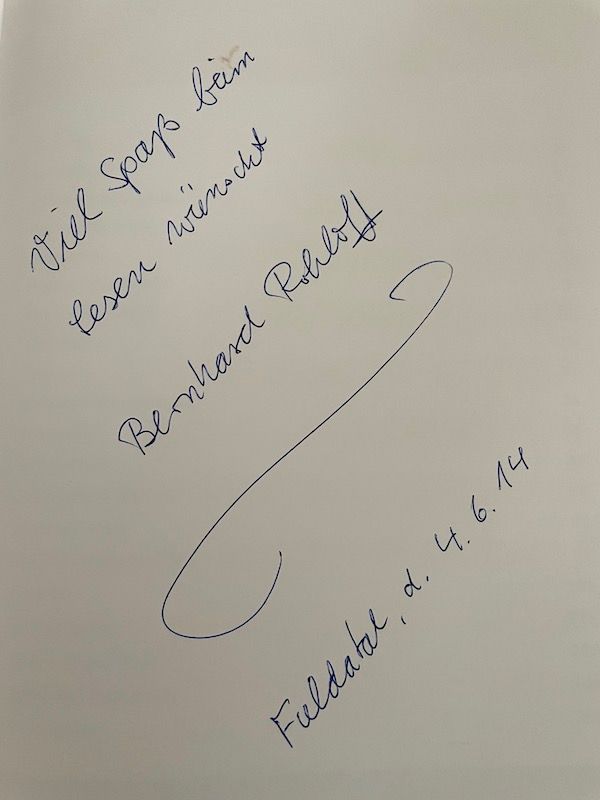 Viel Spaß beim
lesen wünscht
Bernhard Rohloff
Fuldatal, d. 4.6.14